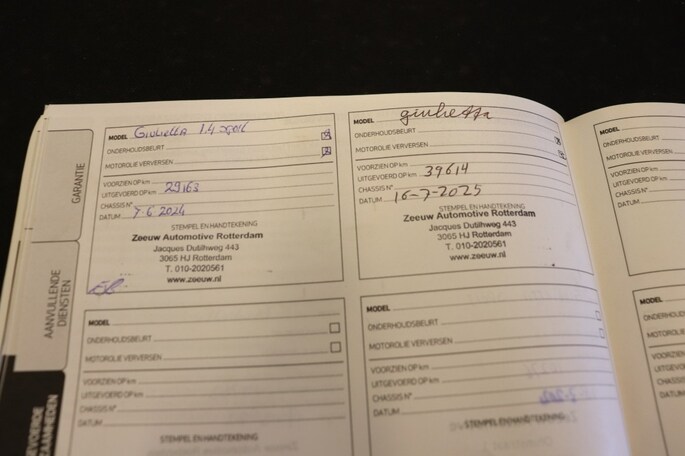 GARANTIE
AANVULLENDE
DIENSTEN
MODEL Giulietta 1.4
ONDERHOUDSBEURT
MOTOROLIE VERVERSEN
VOORZIEN OP km
UITGEVOERD OP km 29163
CHASSIS N°
DATUM 7-6 2024
STEMPEL EN HANDTEKENING
Zeeuw Automotive Rotterdam
Jacques Dutilhweg 443
3065 HJ Rotterdam
T. 010-2020561
www.zeeuw.nl
MODEL giulietta
ONDERHOUDSBEURT
MOTOROLIE VERVERSEN
VOORZIEN OP km
UITGEVOERD OP km 39614
CHASSIS N°
DATUM 16-7-2025
STEMPEL EN HANDTEKENING
Zeeuw Automotive Rotterdam
Jacques Dutilhweg 443
3065 HJ Rotterdam
T. 010-2020561
www.zeeuw.nl
MODEL
ONDERHOUDSBEURT
MOTOROLIE VERVERSEN
VOORZIEN OP km
UITGEVOERD OP km
CHASSIS N°
DATUM
STEMPEL EN HANDTEKENING
MODEL
ONDERHOUDSBEURT
MOTOROLIE VERVERSEN
VOORZIEN OP km
UITGEVOERD OP km
CHASSIS N°
DATUM
STEMPEL EN HANDTEKENING
MODEL
ONDERHOUDSBEURT
MOTOROLIE VERV
VOORZIEN OP km
UITGEVOERD OP
CHASSIS N°
DATUM
MODEL
ONDERHOUDSB
MOTOROLIE
VOORZIEN O
UITGEVOER
CHASSIS N
DATUM